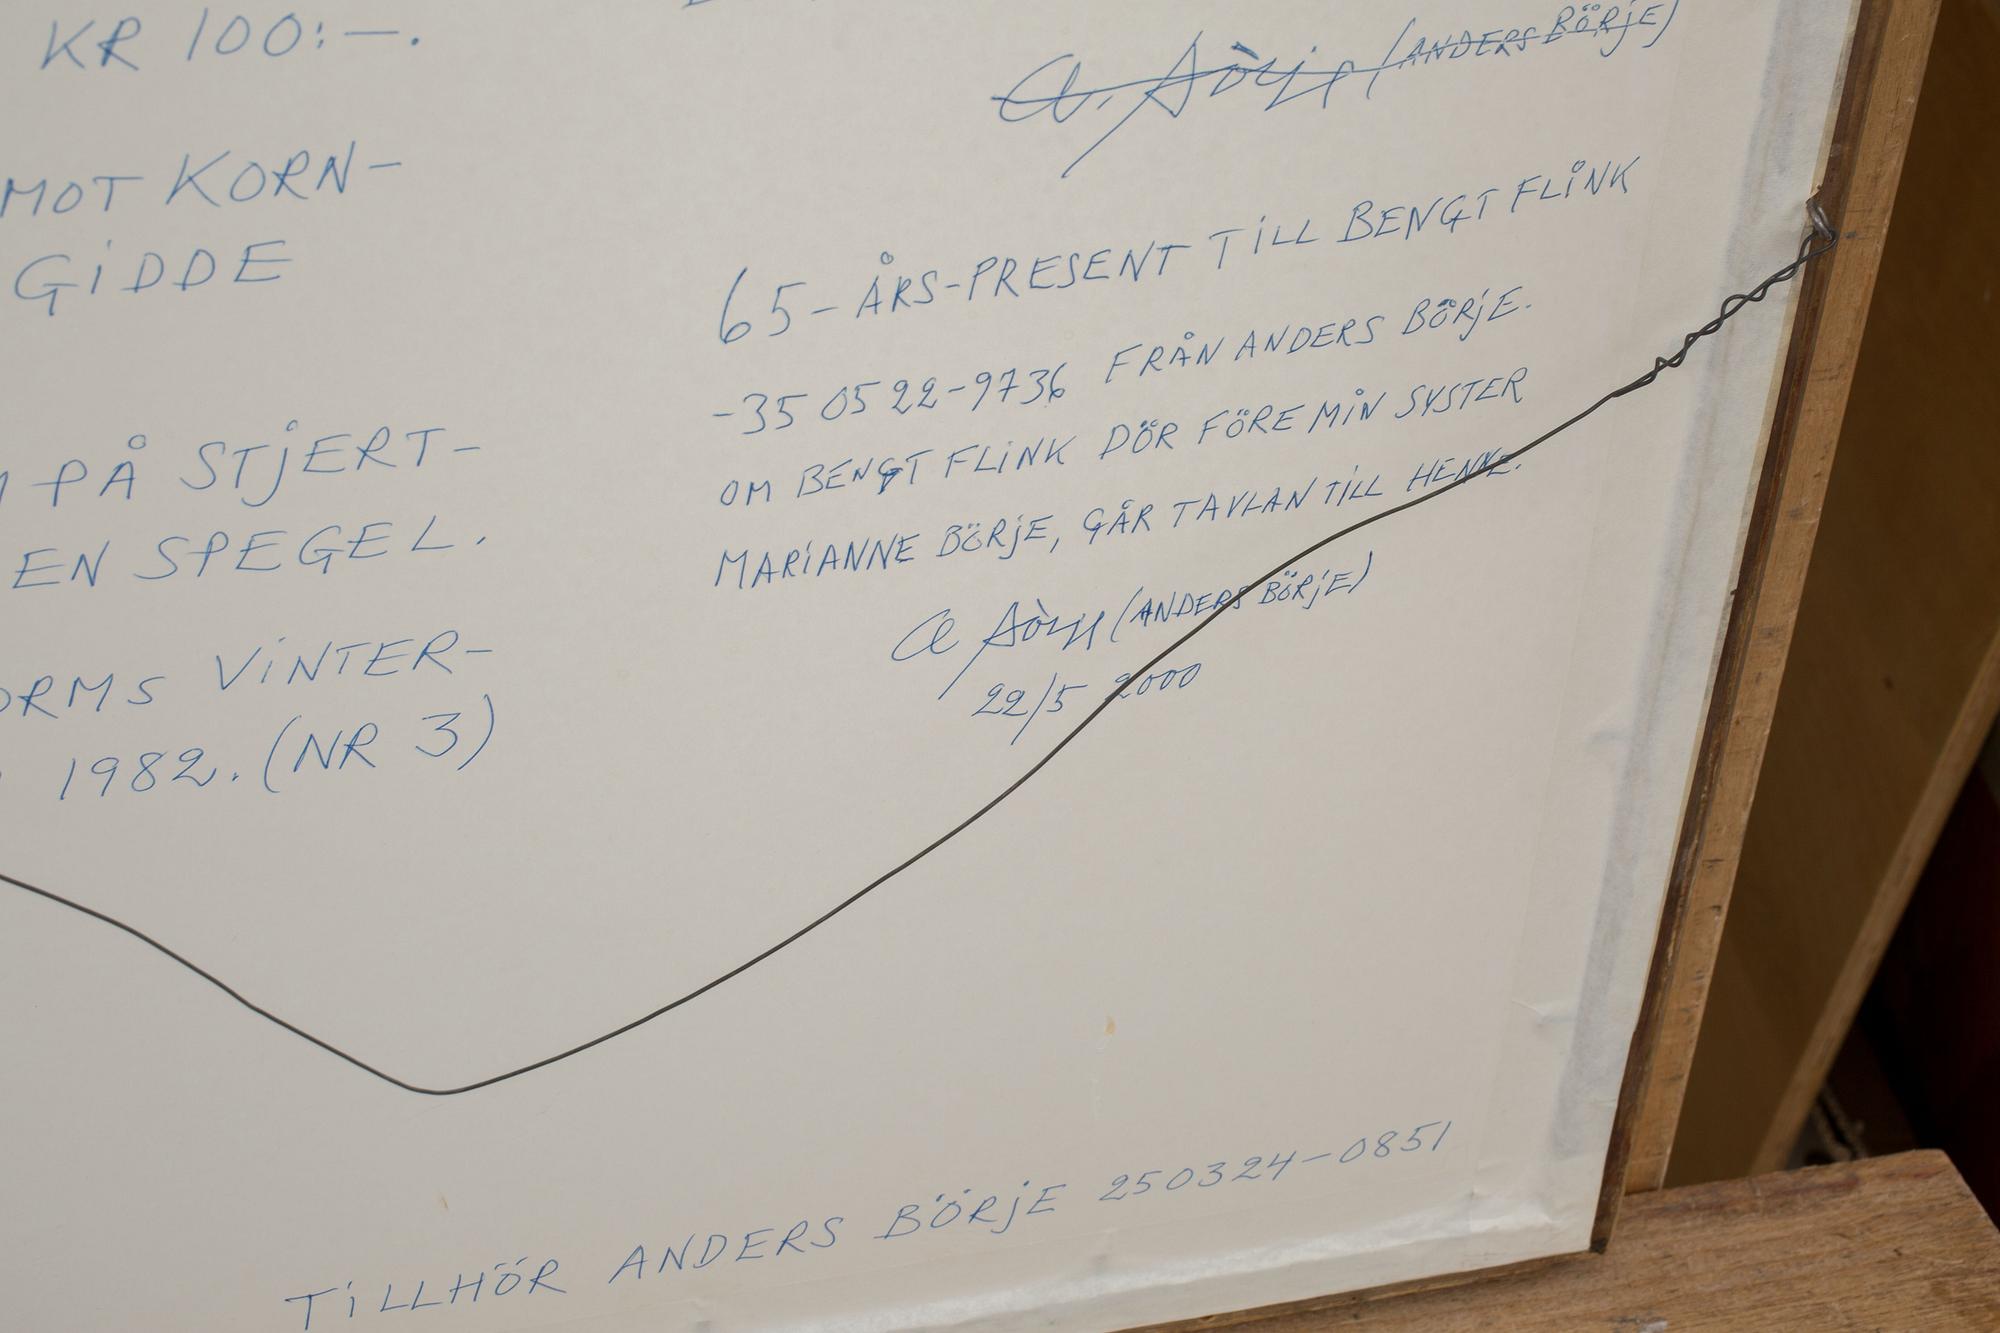 KR 100:-.
MOT KORN-
GIDDE
PÅ STJERT-
EN SPEGEL.
VINTER-
1982. (NR 3)
(ANDERS BÖRJE)
65-ÅRS-PRESENT TILL BENGT FLINK
-35 05 22-9736 FRÅN ANDERS BÖRJE.
OM BENGT FLINK DÖR FÖRE MIN SYSTER
MARIANNE BÖRJE, GÅR TAVLAN TILL HENNE.
(ANDERS BÖRJE)
22/5 2000
TILLHÖR ANDERS BÖRJE 250324-0851